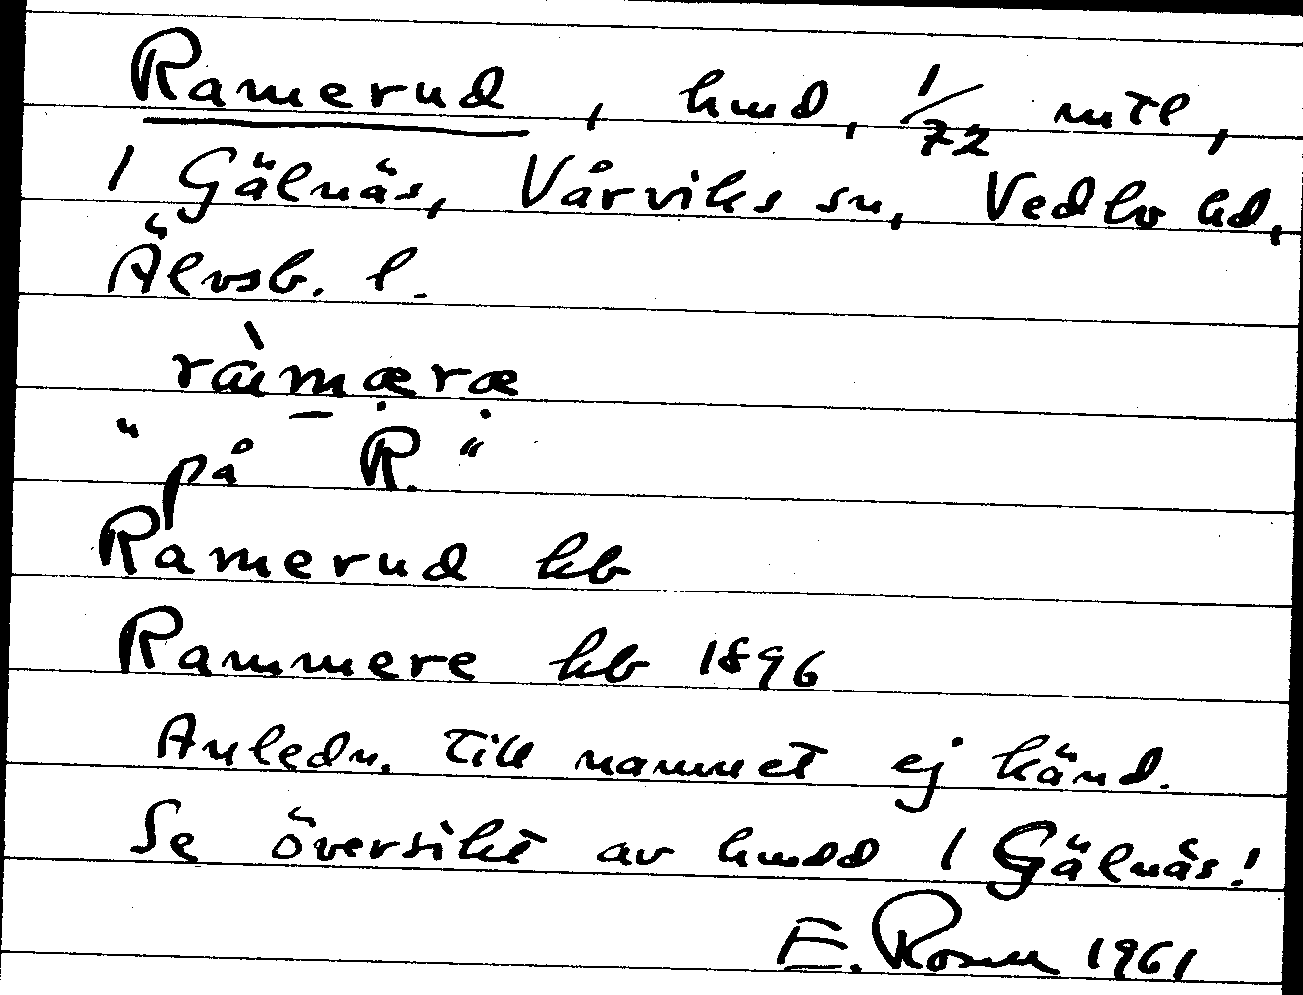 Ramerud, hmd, 1/72 mtl,
1 Gälnäs, Vårviks sn, Vedbo hd,
Älvsb. l.
ràmæræ
"på R."
Ramerud kb
Rammere kb 1896
Anledn. till namnet ej känd.
Se översikt av hmdd 1 Gälnäs!
E. Rosén 1961